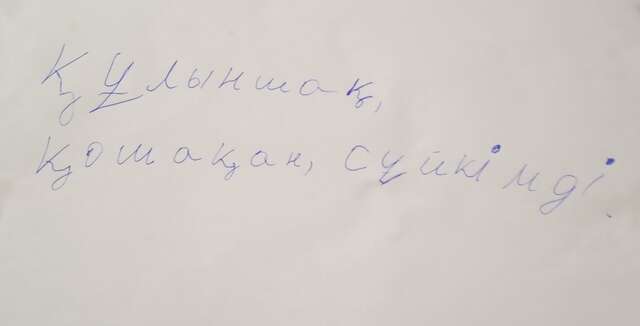 Құлыншақ,
қошақан, сүйкімді.